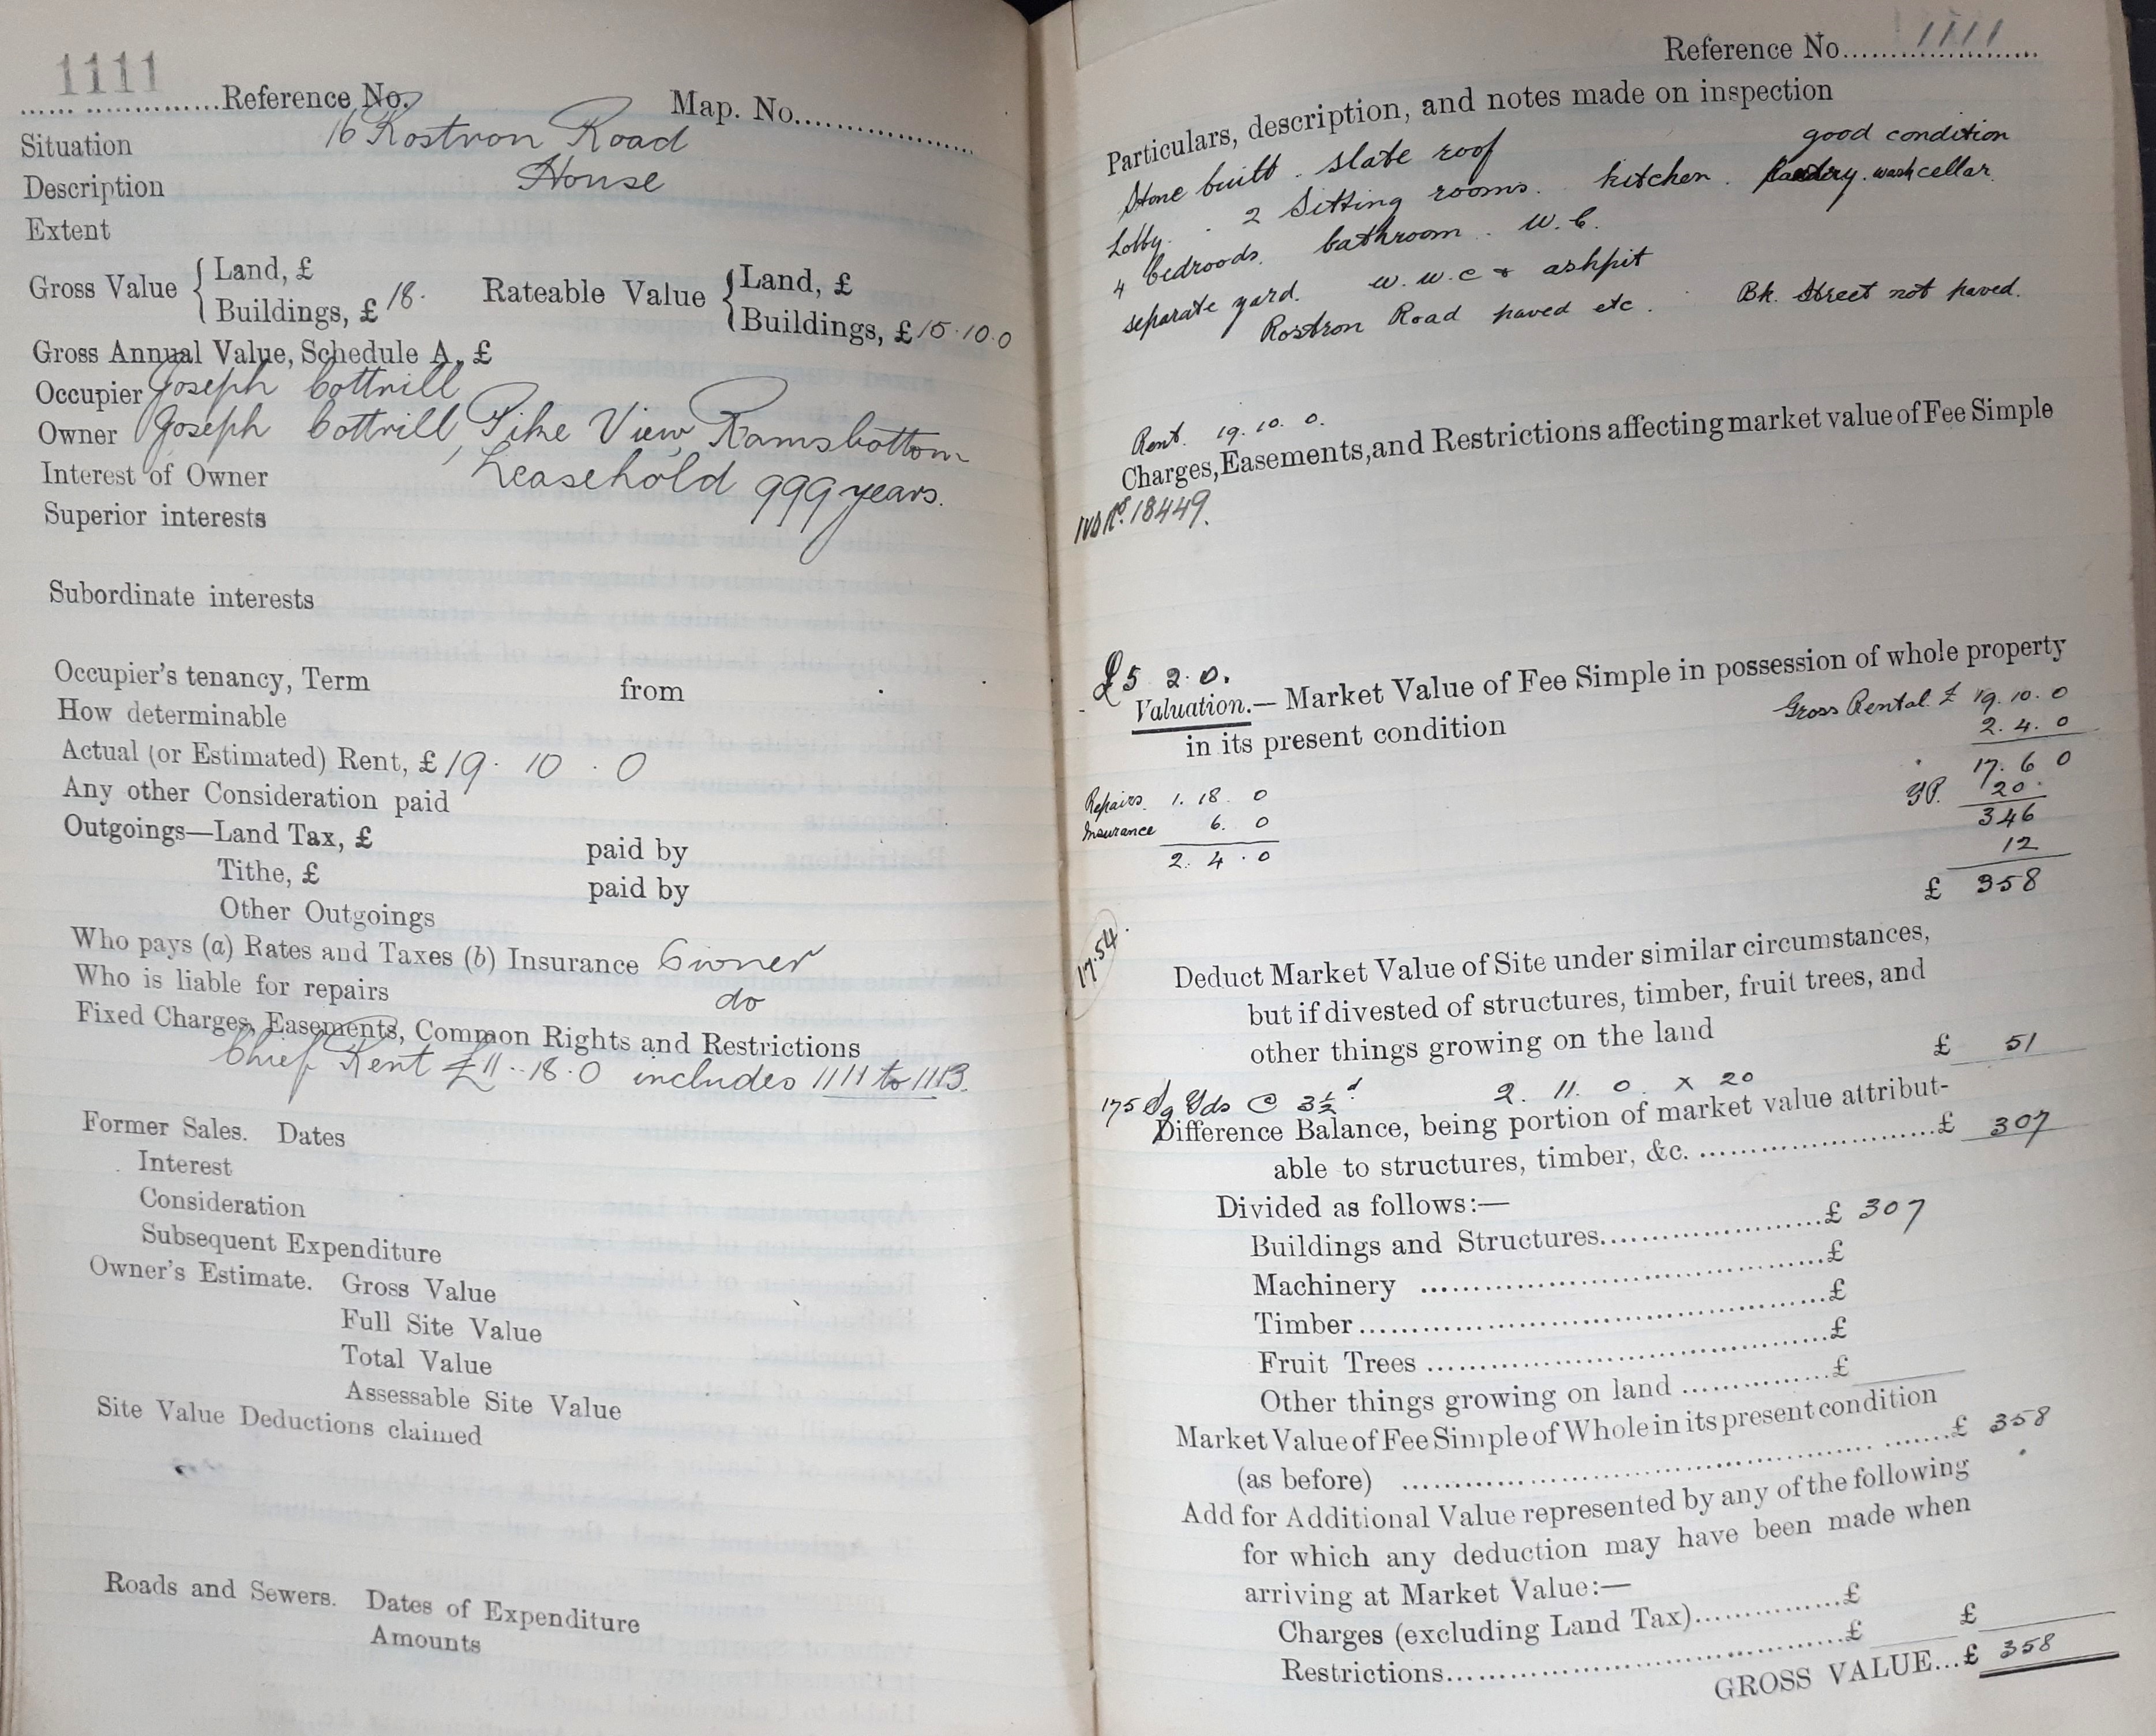 1111
Reference No. Map. No.
Situation 16 Rostron Road
Description House
Extent
Gross Value { Land, £ Rateable Value { Land, £
Buildings, £ 18. Buildings, £ 15.10.0
Gross Annual Value, Schedule A, £
Occupier Joseph Cottrill
Owner Joseph Cottrill, Pike View, Ramsbottom
Interest of Owner Leasehold 999 years.
Superior interests
Subordinate interests
Occupier's tenancy, Term from
How determinable
Actual (or Estimated) Rent, £ 19. 10. 0
Any other Consideration paid
Outgoings—Land Tax, £ paid by
Tithe, £ paid by
Other Outgoings
Who pays (a) Rates and Taxes (b) Insurance Owner
Who is liable for repairs do
Fixed Charges, Easements, Common Rights and Restrictions
Chief Rent £11..18.0 includes 1111 to 1113.
Former Sales. Dates
Interest
Consideration
Subsequent Expenditure
Owner's Estimate. Gross Value
Full Site Value
Total Value
Assessable Site Value
Site Value Deductions claimed
Roads and Sewers. Dates of Expenditure
Amounts
Reference No. 1111
Particulars, description, and notes made on inspection
Stone built. slate roof good condition
Lobby. 2 Sitting rooms. kitchen. wash cellar.
4 bedroods. bathroom. W.C.
separate yard. w.w.c & ashpit
Rostron Road paved etc. Bk. Street not paved.
Rent. 19. 10. 0.
Charges, Easements, and Restrictions affecting market value of Fee Simple
18449.
£5 2.0.
Valuation.—Market Value of Fee Simple in possession of whole property
in its present condition Gross Rental £ 19. 10. 0
2. 4. 0
17. 6 0
Repairs 1. 18. 0 YP. 20.
Insurance 6. 0 346
2. 4. 0 12
£ 358
17.54.
Deduct Market Value of Site under similar circumstances,
but if divested of structures, timber, fruit trees, and
other things growing on the land £ 51
175 Sq Yds @ 3½d 2. 11. 0 x 20
Difference Balance, being portion of market value attribut-
able to structures, timber, &c. £ 307
Divided as follows:—
Buildings and Structures £ 307
Machinery £
Timber £
Fruit Trees £
Other things growing on land £
Market Value of Fee Simple of Whole in its present condition
(as before) £ 358
Add for Additional Value represented by any of the following
for which any deduction may have been made when
arriving at Market Value:—
Charges (excluding Land Tax) £
Restrictions £ £
GROSS VALUE...£ 358